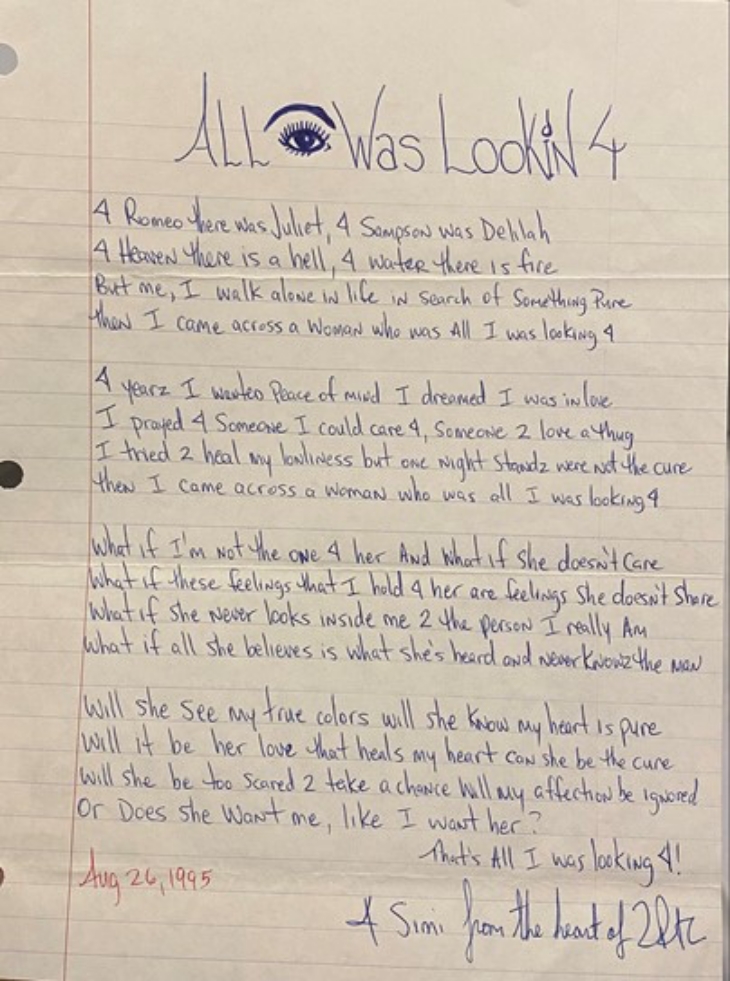 ALL 👁 Was Lookin 4
4 Romeo there was Juliet, 4 Sampson was Delilah
4 Heaven there is a hell, 4 water there is fire
But me, I walk alone in life in search of Something Pure
then I came across a Woman who was All I was looking 4
4 yearz I wanted Peace of mind I dreamed I was in love
I prayed 4 Someone I could care 4, Someone 2 love a thug
I tried 2 heal my lonliness but one night Standz were not the cure
then I came across a woman who was all I was looking 4
What if I'm not the one 4 her And What if She doesn't Care
What if these feelings that I hold 4 her are feelings She doesn't Share
What if She never looks inside me 2 the person I really Am
What if all she believes is what she's heard and never Knowz the man
Will she See my true colors will she Know my heart is pure
Will it be her love that heals my heart can she be the cure
Will she be too scared 2 take a chance Will my affection be ignored
Or Does she Want me, like I want her?
That's All I was looking 4!
Aug 26, 1995
4 Simi from the heart of 2Pac